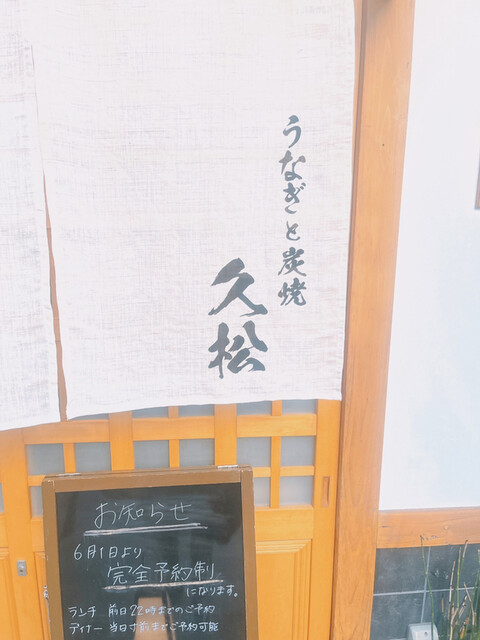 うなぎと炭焼
久松
お知らせ
6月1日より
完全予約制
になります。
ランチ 前日22時までのご予約
ディナー 当日寸前までご予約可能